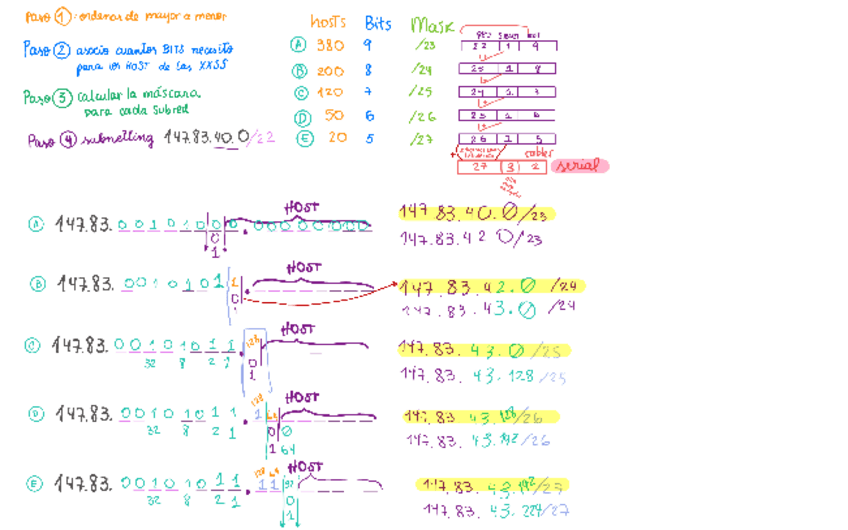 Paso 1 : ordenar de mayor a menor
Paso 2 asocio cuantos BITS necesito
para los HOST de las XXSS
Paso 3 calcular la máscara
para cada subred
Paso 4 subnetting 147.83.40.0/22
hosts Bits Mask
A 380 9 /23
B 200 8 /24
C 120 7 /25
D 50 6 /26
E 20 5 /27
22 1 9
27 3 2 serial
A 147.83. 0 0 1 0 1 0 0 0 . 0 0 0 0 0 0 0 0 HOST
0
1
147.83.40.0/23
147.83.42 0/23
B 147.83. 0 0 1 0 1 0 1 HOST
0
147.83.42.0/24
147.83.43.0/24
C 147.83. 0 0 1 0 1 0 1 1 . 128 HOST
32 8 2 1
0
1
147.83.43.0/25
147.83.43.128/25
D 147.83. 0 0 1 0 1 0 1 1 . 128 1 64 HOST
32 8 2 1
0 0
1 64
147.83 43.128/26
147.83.43.192/26
E 147.83. 0 0 1 0 1 0 1 1 . 128 64 1 1 32 HOST
32 8 2 1
0
1
147.83. 43.192/27
147.83. 43.224/27